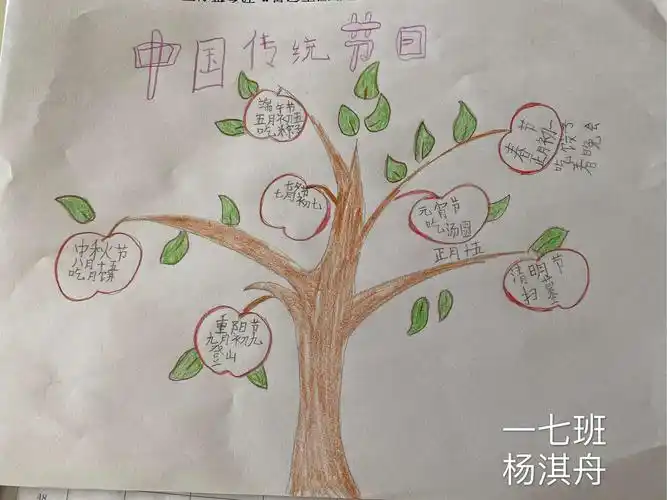 中国传统节目
端午节
五月初五
吃粽子
春节
正月初一
吃饺子
春晚会
七夕节
七月初七
元宵节
吃汤圆
正月十五
中秋节
八月十五
吃月饼
清明节
扫墓
重阳节
九月初九
登山
一七班
杨淇舟
48